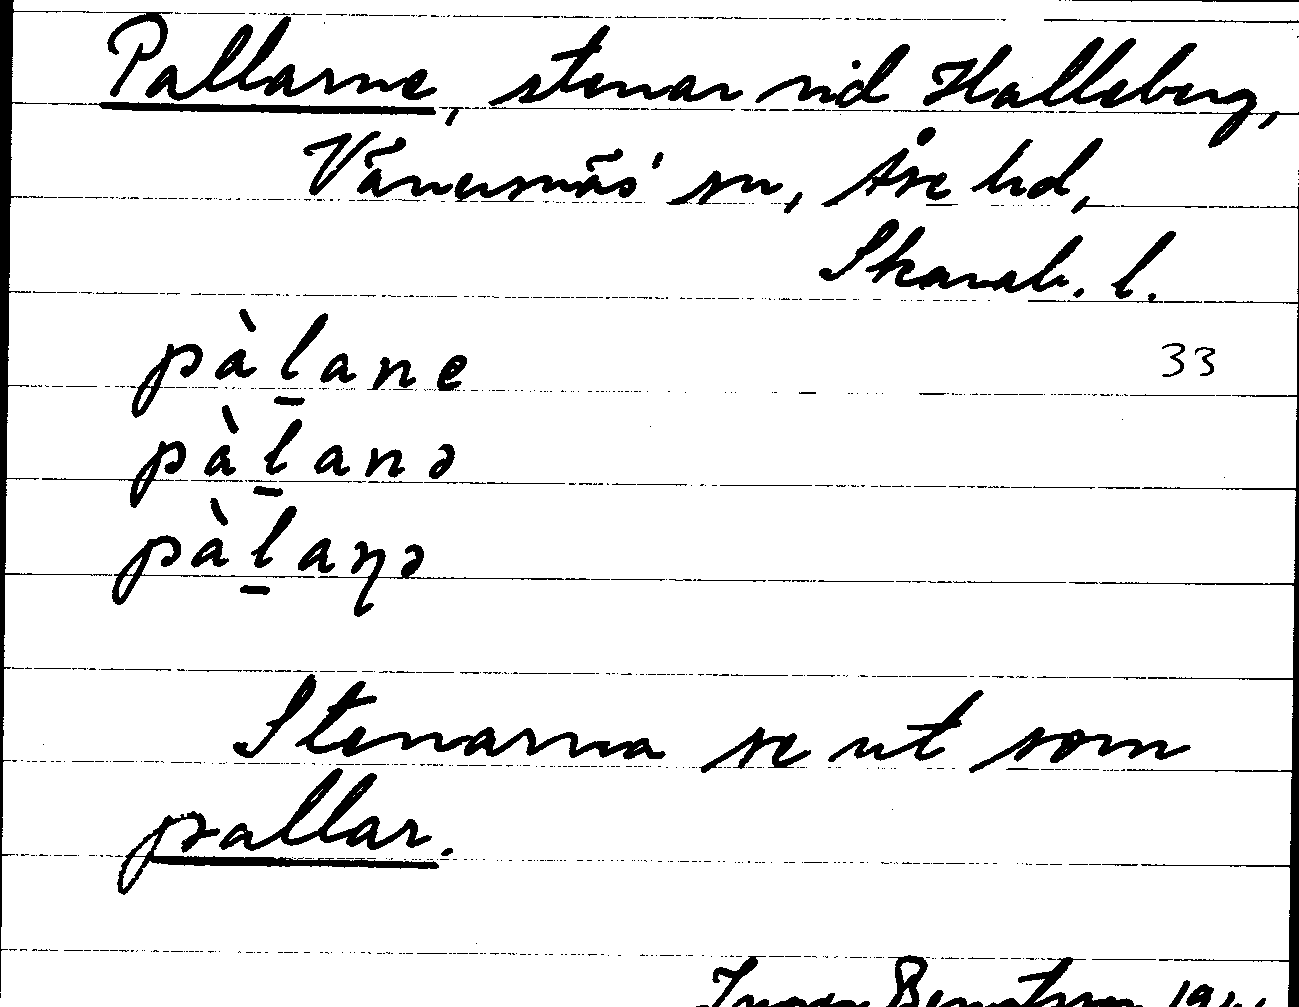 Pallarne, stenar vid Halleberg,
Vänersnäs' sn, Åse hd,
Skarab. l.
pàl̠ane
33
pàl̠anə
pàl̠aṇə
Stenarna se ut som
pallar.